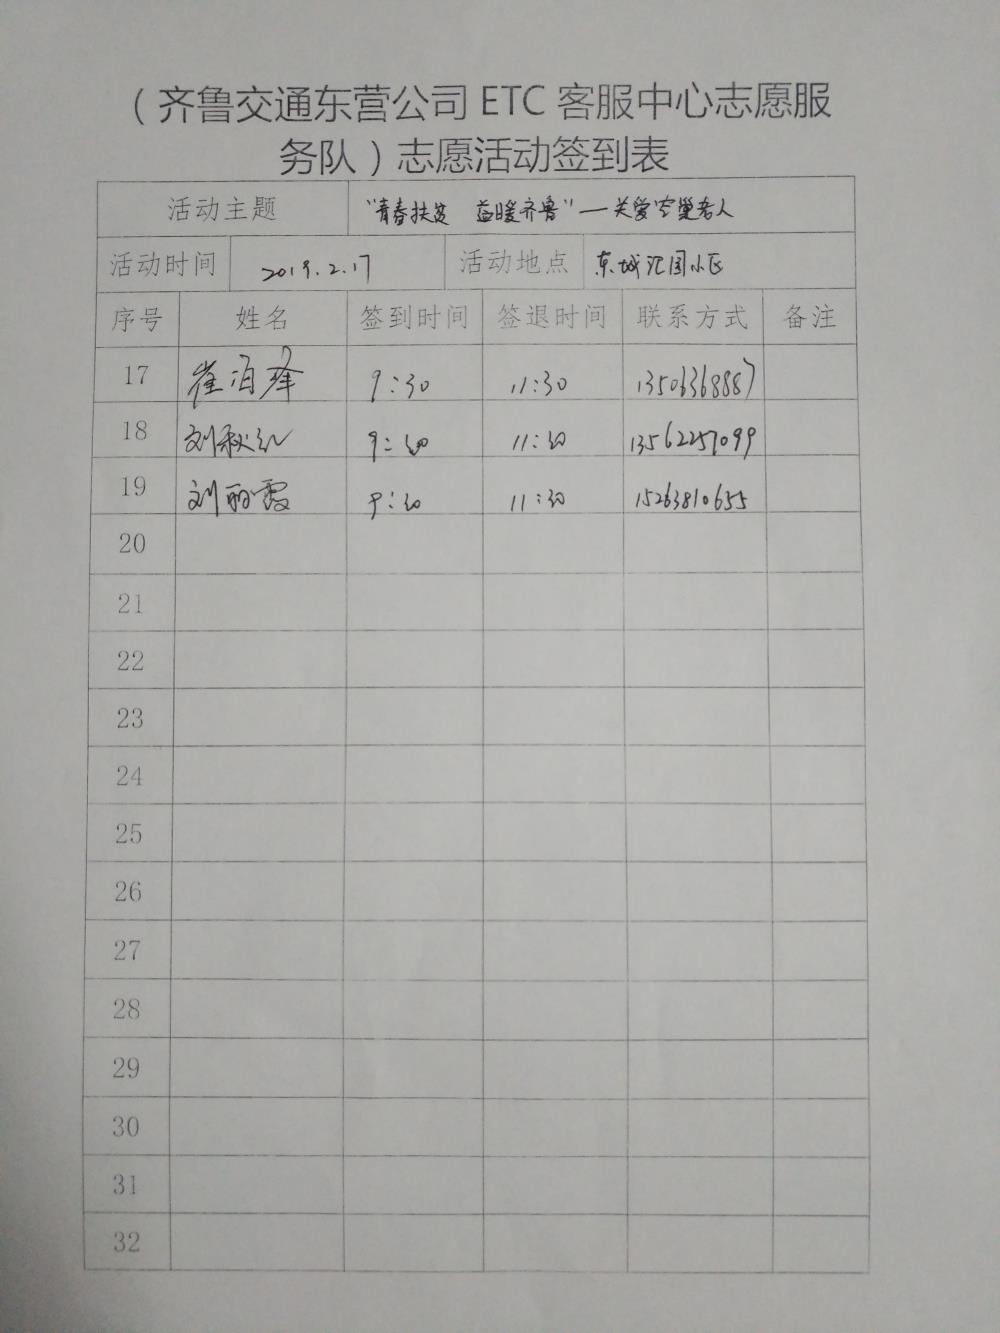 （齐鲁交通东营公司 ETC 客服中心志愿服
务队）志愿活动签到表
活动主题 “青春扶贫 益暖齐鲁”—关爱空巢老人
活动时间 2019.2.17 活动地点 东城汇园小区
序号 姓名 签到时间 签退时间 联系方式 备注
17 崔泊峰 9:30 11:30 13506368887
18 刘秋红 9:30 11:30 13562257099
19 刘丽霞 9:30 11:30 15263810655
20
21
22
23
24
25
26
27
28
29
30
31
32